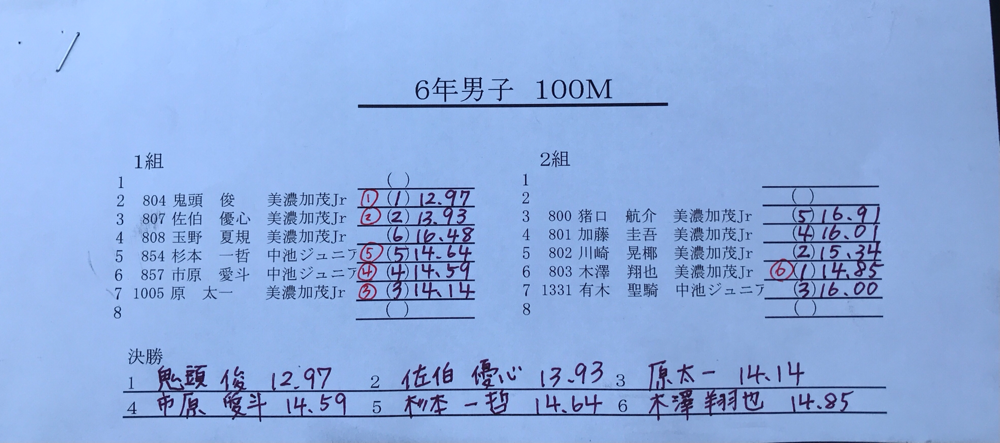 6年男子 100M
1組
1 ( )
2 804 鬼頭 俊 美濃加茂Jr ① (1) 12.97
3 807 佐伯 優心 美濃加茂Jr ② (2) 13.93
4 808 玉野 夏規 美濃加茂Jr (6) 16.48
5 854 杉本 一哲 中池ジュニア ⑤ (5) 14.64
6 857 市原 愛斗 中池ジュニア ④ (4) 14.59
7 1005 原 太一 美濃加茂Jr ③ (3) 14.14
8 ( )
2組
1
2 ( )
3 800 猪口 航介 美濃加茂Jr (5) 16.91
4 801 加藤 圭吾 美濃加茂Jr (4) 16.01
5 802 川崎 晃椰 美濃加茂Jr (2) 15.34
6 803 木澤 翔也 美濃加茂Jr ⑥ (1) 14.85
7 1331 有木 聖騎 中池ジュニア (3) 16.00
8 ( )
決勝
1 鬼頭 俊 12.97 2 佐伯 優心 13.93 3 原太一 14.14
4 市原 愛斗 14.59 5 杉本 一哲 14.64 6 木澤翔也 14.85